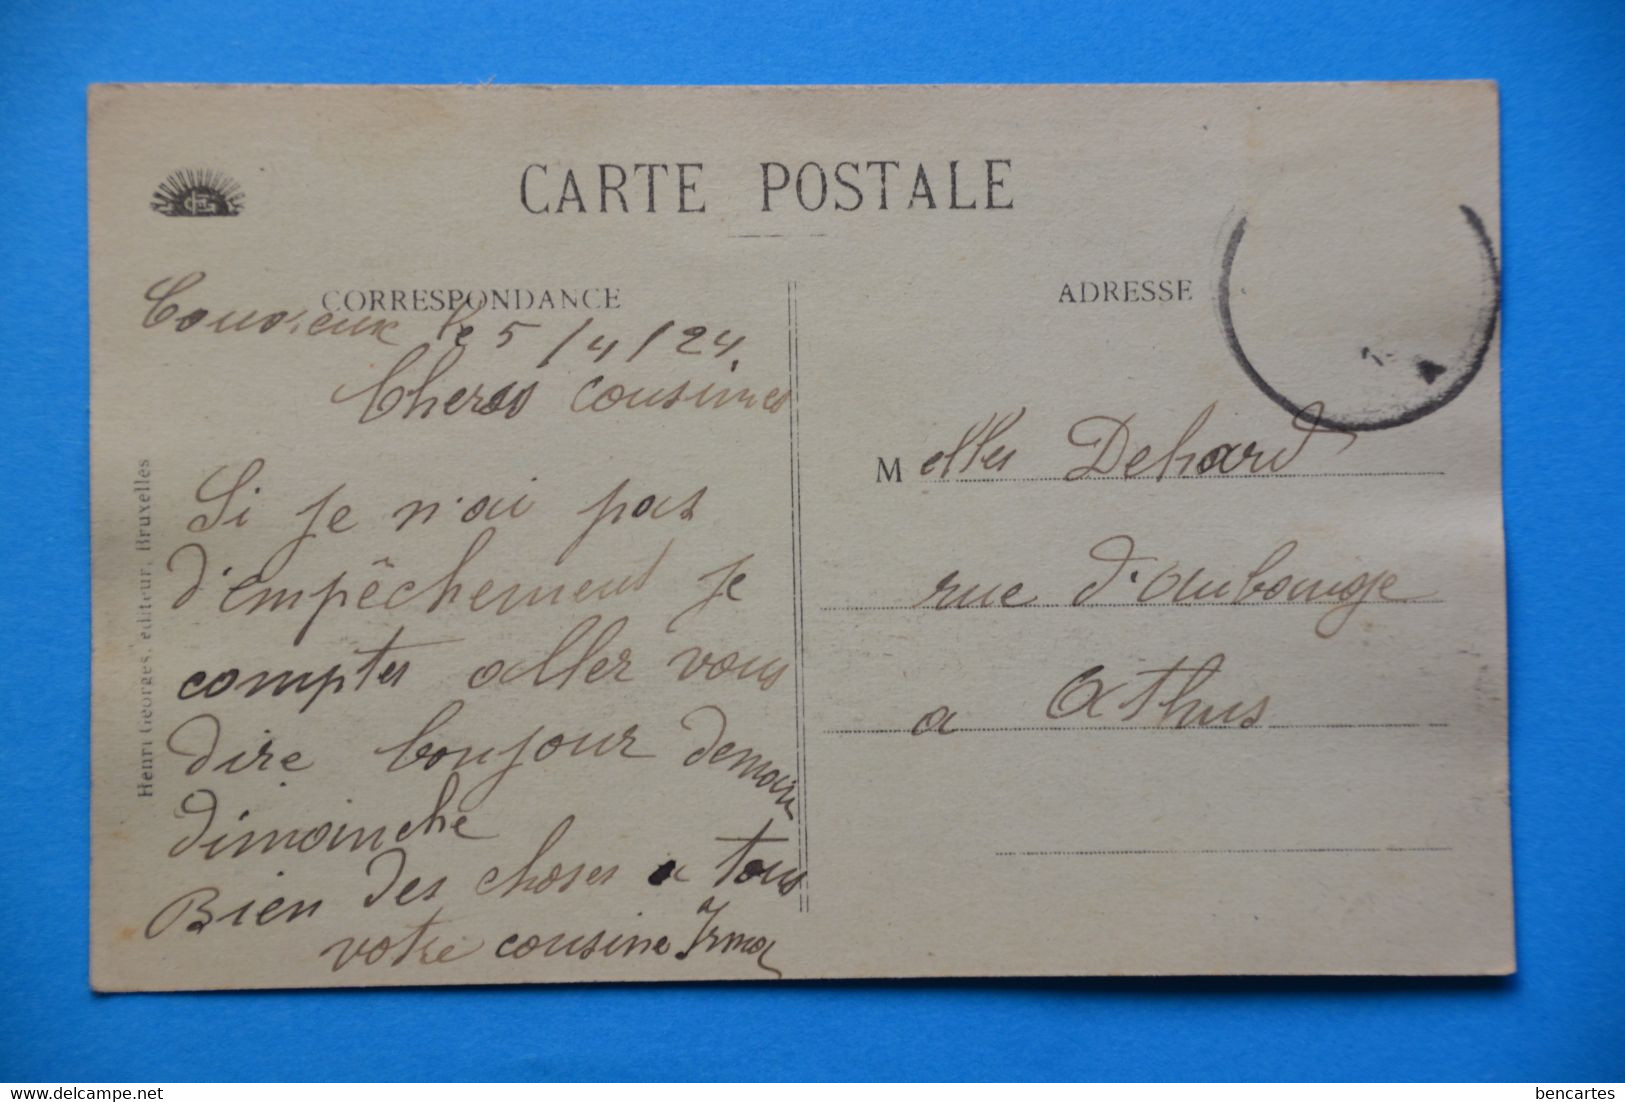 CARTE POSTALE
CORRESPONDANCE
le 5/4/24.
Cheres cousines
Si je n'ai pas
d'empêchement je
comptes aller vous
dire bonjour demain
dimanche
Bien des choses a tous
votre cousine Irma
Henri Georges, éditeur, Bruxelles
ADRESSE
Melles Dehard
rue d'aubange
a Athus
delcampe.net
bencartes